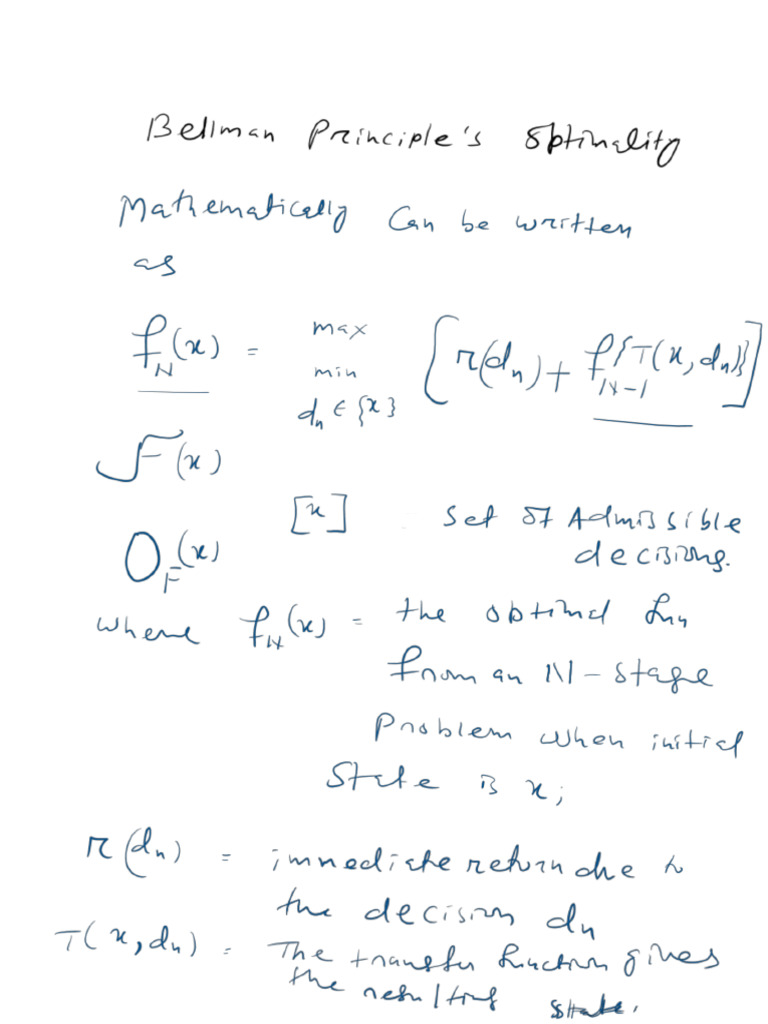 Bellman Principle's Optimality
Mathematically Can be written
as
f_N(x) = max min d_n ∈ {x} [r(d_n) + f_{N-1}{T(x, d_n)}]
F(x)
[x] Set of Admissible
decisions.
O_F(x)
where f_N(x) = the optimal fun
from an N-stage
Problem when initial
State is x;
r(d_n) = immediate return due to
the decision d_n
T(x, d_n) = The transfer function gives
the resulting state.